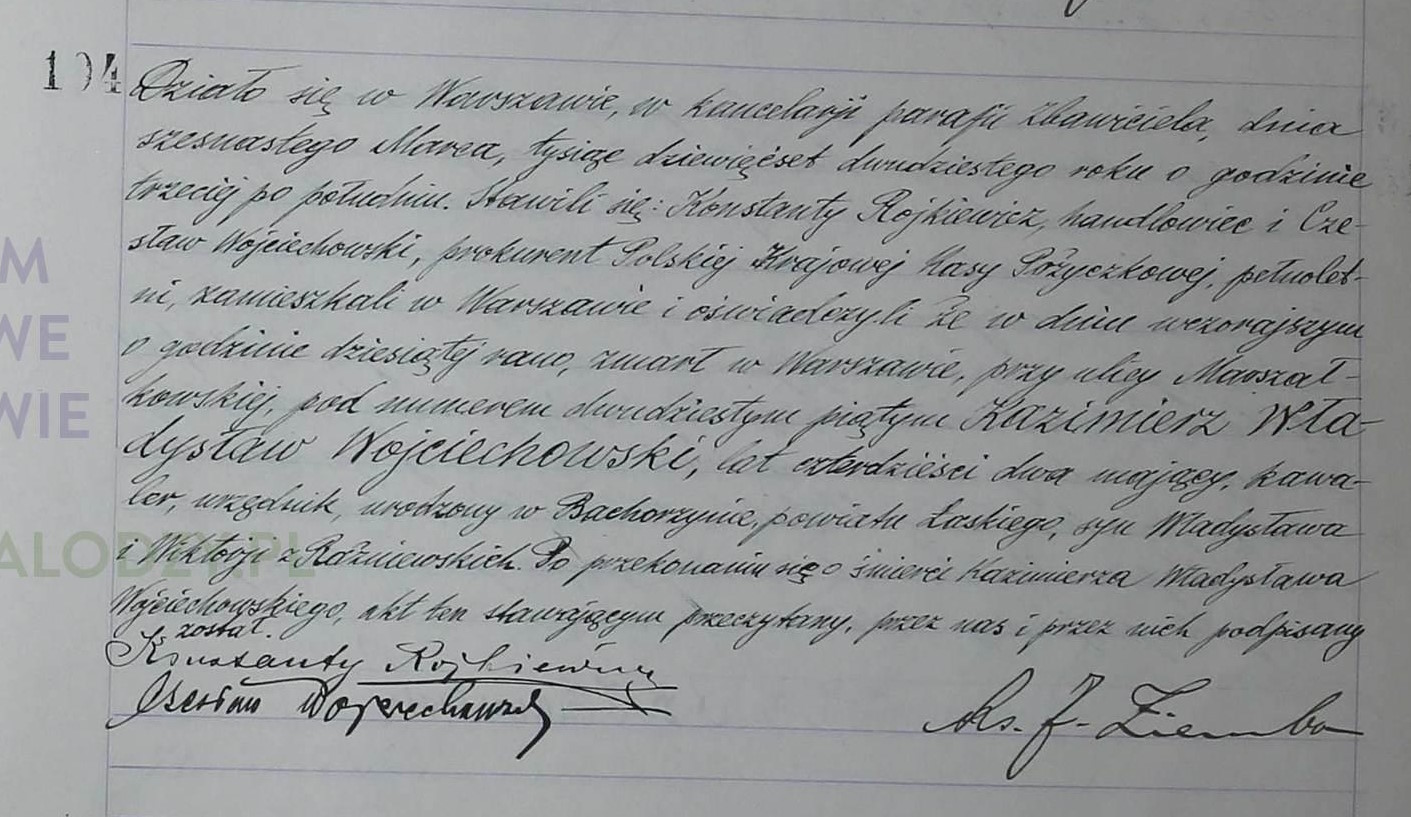 194
Działo się w Warszawie, w kancelarji parafji Zbawiciela, dnia
szesnastego Marca, tysiąc dziewięćset dwudziestego roku o godzinie
trzeciej po południu. Stawili się: Konstanty Rojkiewicz, handlowiec i Cze-
sław Wojciechowski, prokurent Polskiej Krajowej Kasy Pożyczkowej, pełnolet-
ni, zamieszkali w Warszawie i oświadczyli że w dniu wczorajszym
o godzinie dziesiątej rano, zmarł w Warszawie, przy ulicy Marszał-
kowskiej, pod numerem dwudziestym piątym Kazimierz Wła-
dysław Wojciechowski, lat czterdzieści dwa mający, kawa-
ler, urzędnik, urodzony w Bachorzynie, powiatu Łaskiego, syn Władysława
i Wiktorji z Raźniewskich. Po przekonaniu się o śmierci Kazimierza Władysława
Wojciechowskiego, akt ten stawającym przeczytany, przez nas i przez nich podpisany
został.
Konstanty Rojkiewicz
Czesław Wojciechowski
Ks. F. Ziemba
M
WE
WIE
ALODZ21.PL